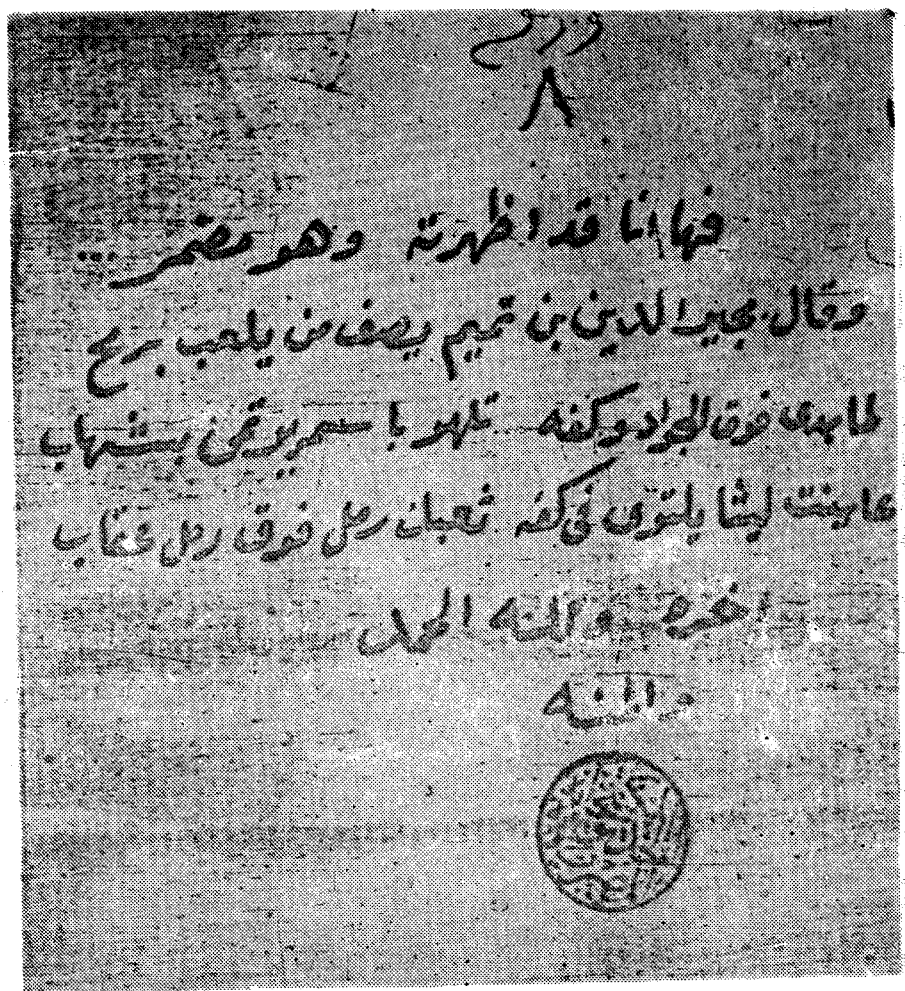 ٨
فها انا قد اظهرته وهو مضمر ...
وقال مجير الدين بن تميم يصف من يلعب برمح
لما بدى فوق الجواد وكفه تلهو باسمر لا تمن بشهاب
عاينت ليثا يلتوى فى كفه ثعبان رمل فوق رمل عقاب
اخره والله
والله